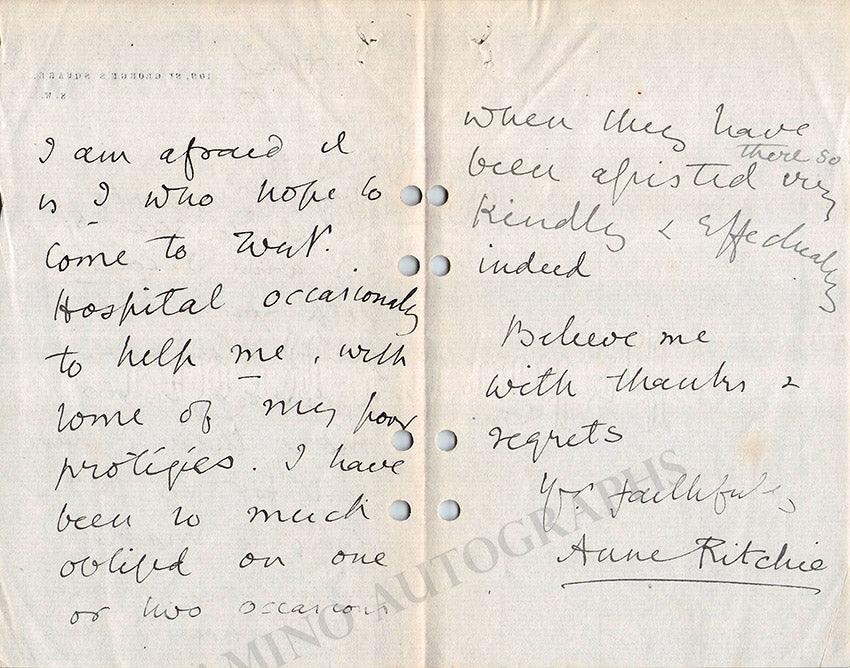 109, ST GEORGE'S SQUARE,
S.W.
I am afraid it
is I who hope to
come to
Hospital occasionally
to help me, with
some of my poor
protégées. I have
been so much
obliged on one
or two occasions
when they have
been assisted there so very
kindly & effectually
indeed
Believe me
with thanks &
regrets
Yrs faithfully
Anne Ritchie
AMINO AUTOGRAPHS